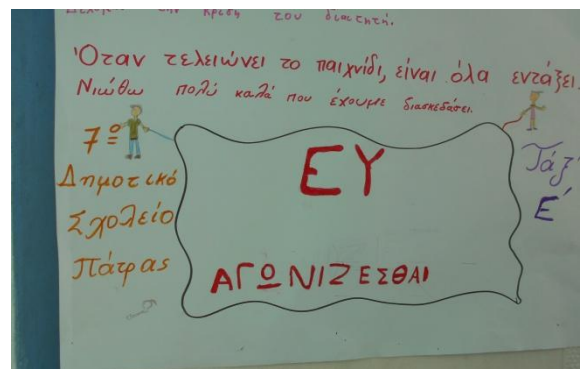 την κρίση του διαιτητή.
Όταν τελειώνει το παιχνίδι, είναι όλα εντάξει.
Νιώθω πολύ καλά που έχουμε διασκεδάσει.
7º
Δημοτικό
Σχολείο
Πάτρας
ΕΥ
ΑΓΩΝΙΖΕΣΘΑΙ
Τάξ
Ε΄